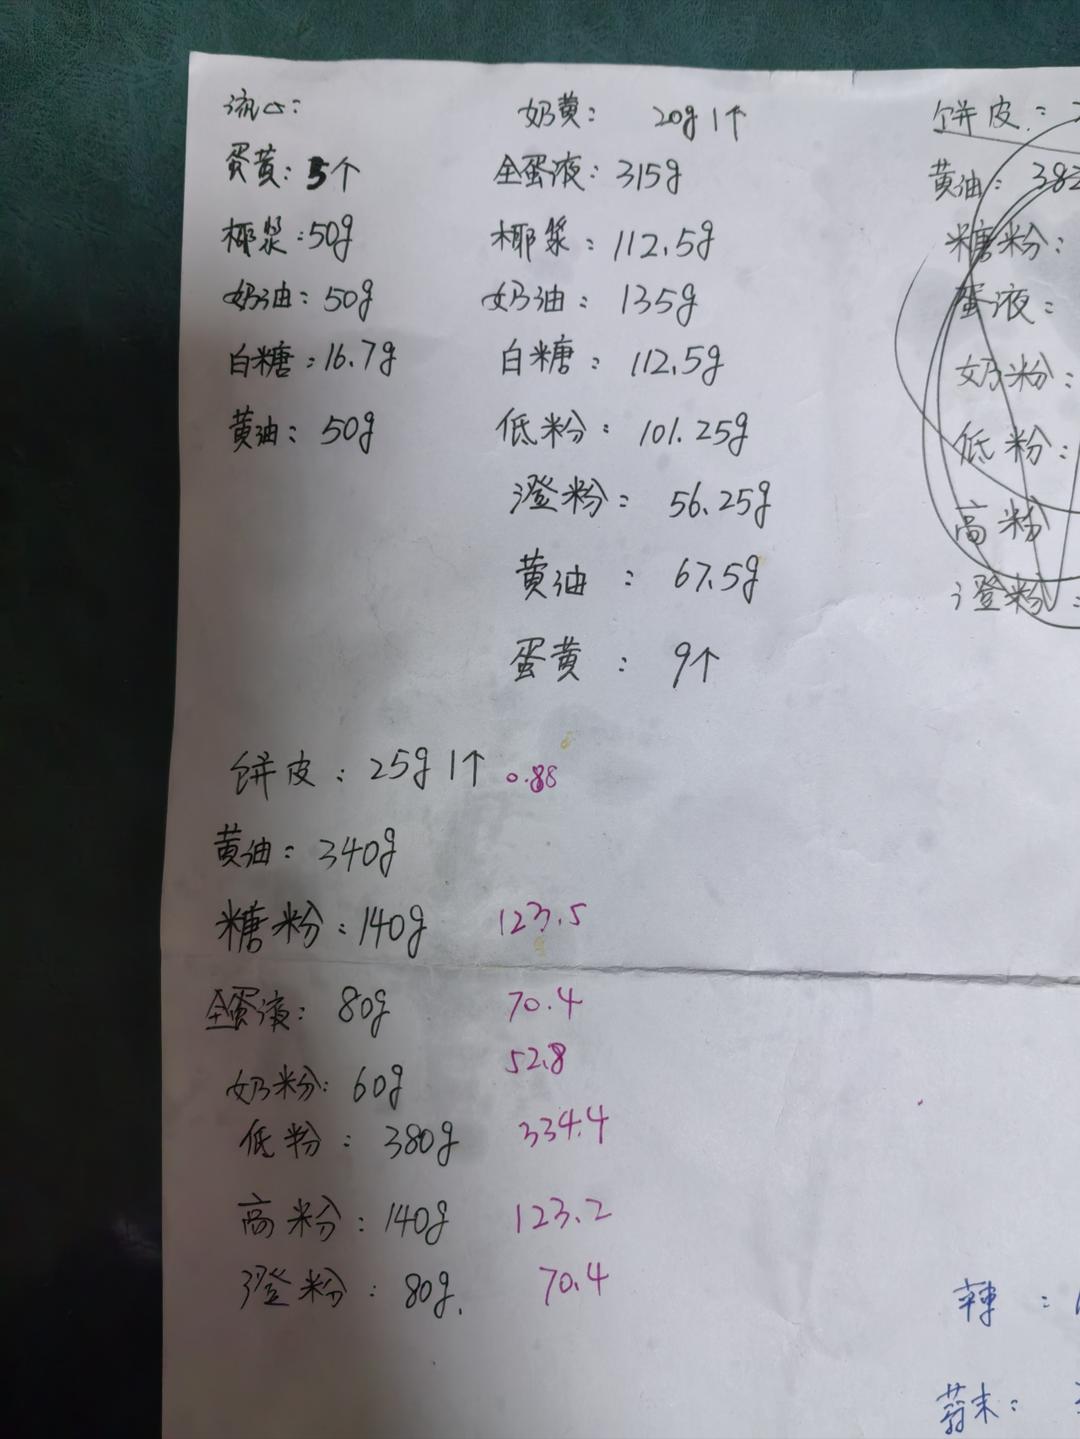 流心:
蛋黄: 5个
椰浆:50g
奶油: 50g
白糖:16.7g
黄油: 50g
奶黄: 20g 1个
全蛋液: 315g
椰浆: 112.5g
奶油: 135g
白糖: 112.5g
低粉: 101.25g
澄粉: 56.25g
黄油: 67.5g
蛋黄: 9个
饼皮:
黄油: 382
糖粉:
蛋液:
奶粉:
低粉:
高粉
澄粉:
饼皮: 25g 1个 0.88
黄油: 340g
糖粉: 140g 123.5
全蛋液: 80g 70.4
奶粉: 60g 52.8
低粉: 380g 334.4
高粉: 140g 123.2
澄粉: 80g. 70.4
辣:
蒜末: